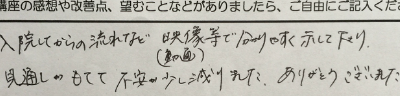 講座の感想や改善点、望むことなどがありましたら、ご自由にご記入くださ
入院してからの流れなど 映像等で分かりやすく示して下さり
(動画)
見通しがもてて 不安が少し減りました。ありがとうございました